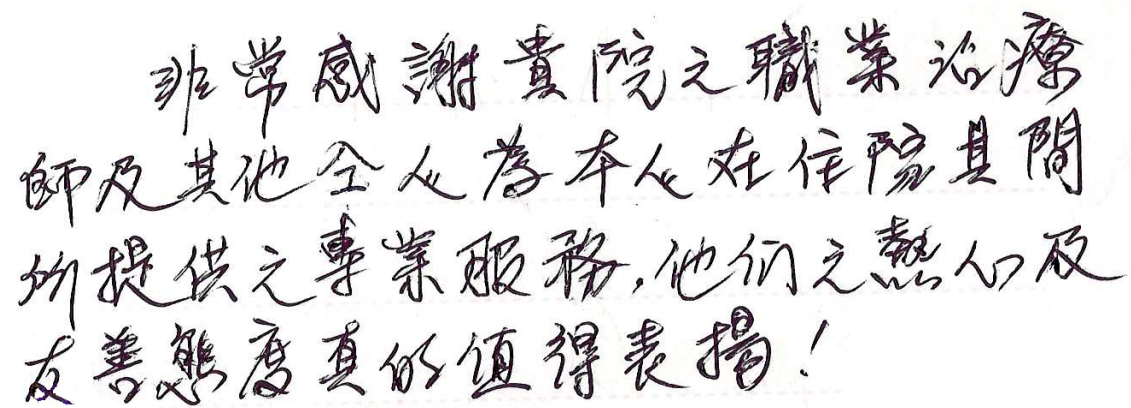 非常感謝貴院之職業治療
師及其他仝人為本人在住院其間
所提供之專業服務,他们之熱心及
友善態度真的值得表揚!